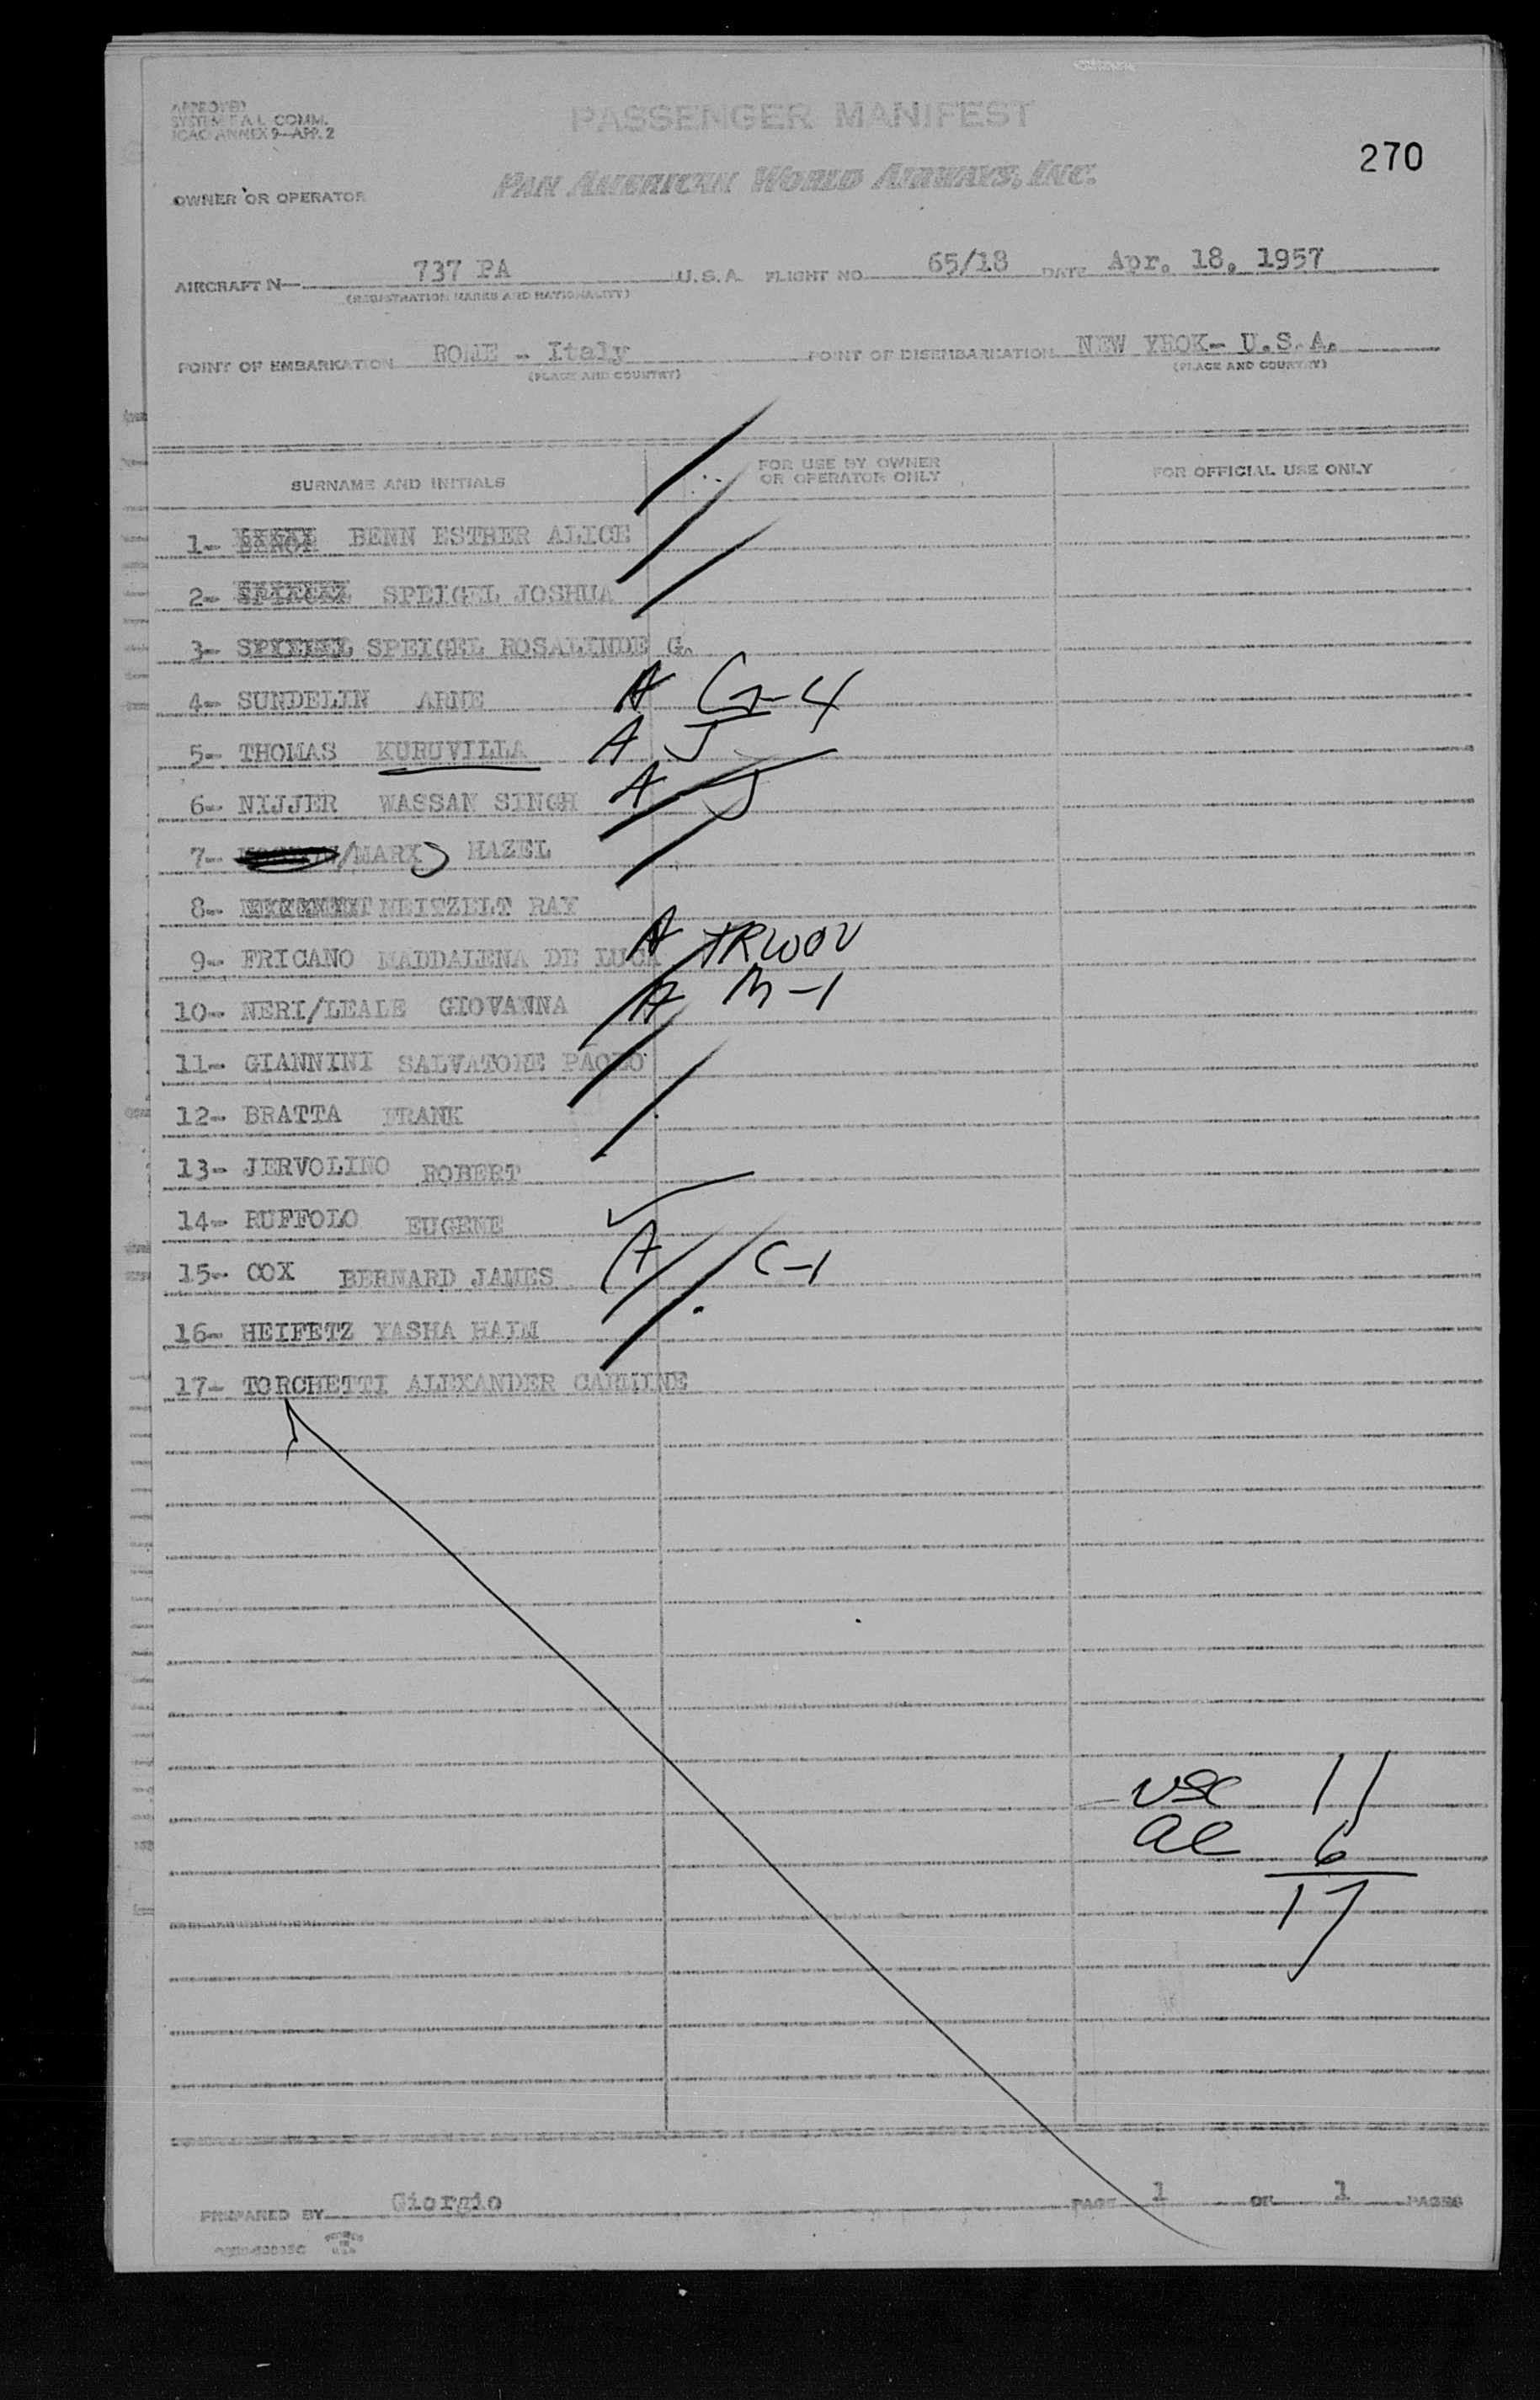 APPROVED
SYSTEM F.A.L. COMM.
ICAO ANNEX 9—APP. 2
PASSENGER MANIFEST
270
PAN AMERICAN WORLD AIRWAYS, INC.
OWNER OR OPERATOR
AIRCRAFT N— 737 PA U.S.A. FLIGHT NO 65/18 DATE Apr. 18, 1957
(REGISTRATION MARKS AND NATIONALITY)
POINT OF EMBARKATION ROME - Italy POINT OF DISEMBARKATION NEW YROK- U.S.A.
(PLACE AND COUNTRY) (PLACE AND COUNTRY)
SURNAME AND INITIALS FOR USE BY OWNER OR OPERATOR ONLY FOR OFFICIAL USE ONLY
1- BENN ESTHER ALICE
2- SPEIGEL JOSHUA
3- SPEIGEL ROSALINDE G.
4- SUNDELIN ARNE A G-4
5- THOMAS KURUVILLA A J
6- NIJJER WASSAN SINGH A J
7- /MARX HAZEL
8- NEITZELT RAY
9- FRICANO MADDALENA DE LUCA A TRWOV
10- NERI/LEALE GIOVANNA A M-1
11- GIANNINI SALVATORE PAOLO
12- BRATTA FRANK
13- JERVOLINO ROBERT
14- RUFFOLO EUGENE
15- COX BERNARD JAMES A C-1
16- HEIFETZ YASHA HAIM
17- TORCHETTI ALEXANDER CARMINE
USC 11
al 6
17
PREPARED BY Giorgio PAGE 1 OF 1 PAGES